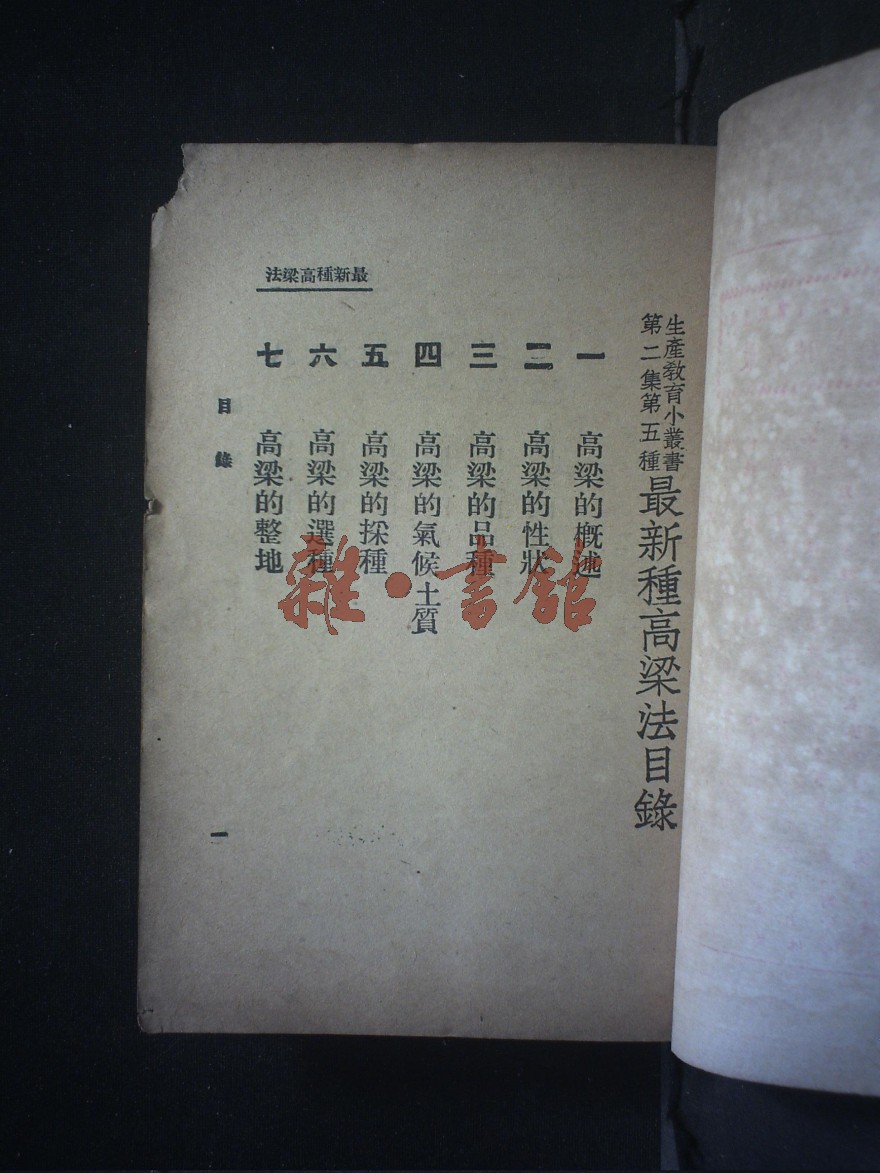 生產敎育小叢書
第二集第五種
最新種高梁法目錄
最新種高梁法
一 高梁的概述
二 高梁的性狀
三 高梁的品種
四 高梁的氣候土質
五 高梁的採種
六 高梁的選種
七 高梁的整地
目錄
一
雜·書館